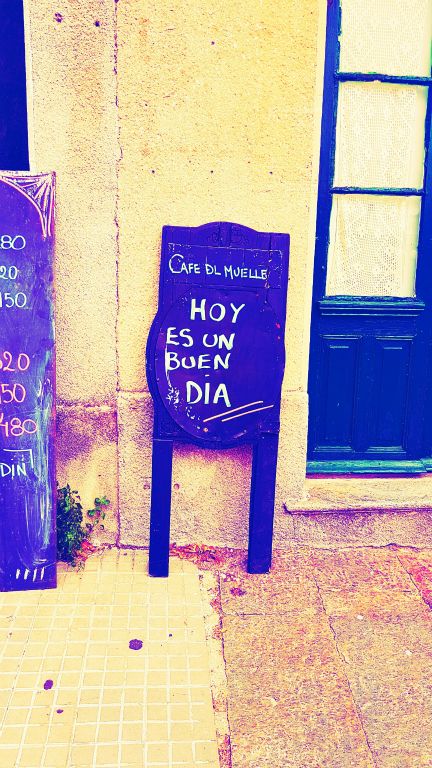 CAFE DL MUELLE
HOY
ES UN
BUEN
DIA
80
20
150
320
150
480
DIN